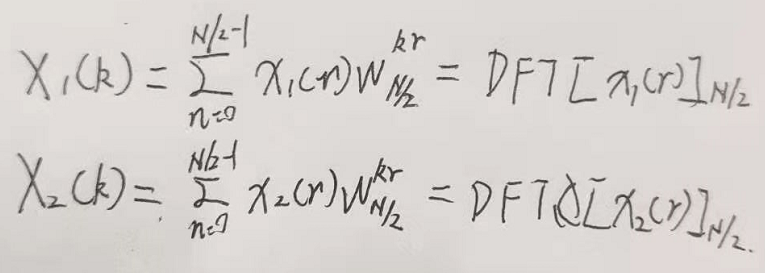 X₁(k) = \sum_{n=0}^{N/2-1} x₁(r) W_{N/2}^{kr} = DFT[x₁(r)]_{N/2}
X₂(k) = \sum_{n=0}^{N/2-1} x₂(r) W_{N/2}^{kr} = DFT[x₂(r)]_{N/2}.